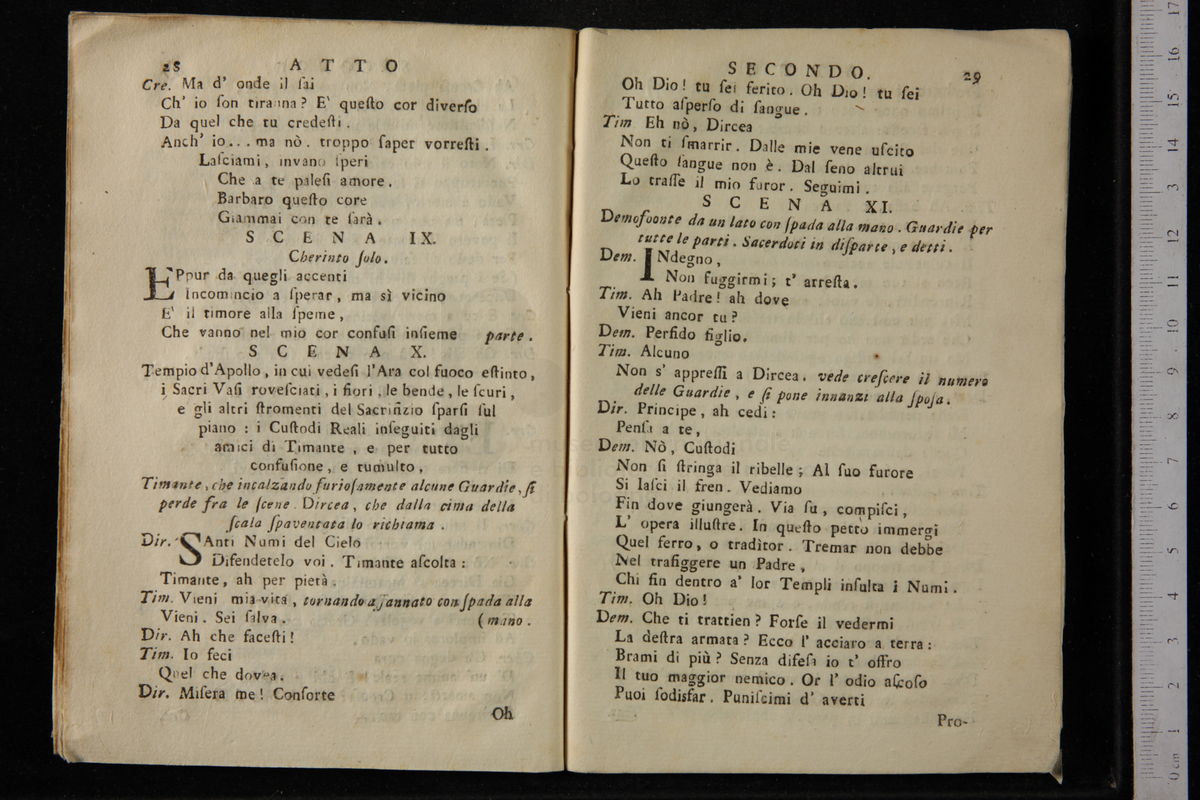 28 ATTO
Cre. Ma d' onde il ſai
Ch' io ſon tiranna? E' queſto cor diverſo
Da quel che tu credeſti.
Anch' io... ma nò. troppo ſaper vorreſti.
Laſciami, invano ſperi
Che a te paleſi amore.
Barbaro queſto core
Giammai con te ſarà.
SCENA IX.
Cherinto ſolo.
EPpur da quegli accenti
Incomincio a ſperar, ma sì vicino
E' il timore alla ſpeme,
Che vanno nel mio cor confuſi inſieme parte.
SCENA X.
Tempio d'Apollo, in cui vedeſi l'Ara col fuoco eſtinto,
i Sacri Vaſi roveſciati, i fiori, le bende, le ſcuri,
e gli altri ſtromenti del Sacrifizio ſparſi ſul
piano: i Cuſtodi Reali inſeguiti dagli
amici di Timante, e per tutto
confuſione, e tumulto,
Timante, che incalzando furioſamente alcune Guardie, ſi
perde fra le ſcene. Dircea, che dalla cima della
ſcala ſpaventata lo richiama.
Dir. SAnti Numi del Cielo
Difendetelo voi. Timante aſcolta:
Timante, ah per pietà.
Tim. Vieni mia vita, tornando affannato con ſpada alla
Vieni. Sei ſalva. (mano.
Dir. Ah che faceſti!
Tim. Io feci
Quel che dovea.
Dir. Miſera me! Conſorte
Oh
SECONDO. 29
Oh Dio! tu ſei ferito. Oh Dio! tu ſei
Tutto aſperſo di ſangue.
Tim Eh nò, Dircea
Non ti ſmarrir. Dalle mie vene uſcito
Queſto ſangue non è. Dal ſeno altrui
Lo traſſe il mio furor. Seguimi.
SCENA XI.
Demofoonte da un lato con ſpada alla mano. Guardie per
tutte le parti. Sacerdoti in diſparte, e detti.
Dem. INdegno,
Non fuggirmi; t' arreſta.
Tim. Ah Padre! ah dove
Vieni ancor tu?
Dem. Perfido figlio.
Tim. Alcuno
Non s' appreſſi a Dircea. vede creſcere il numero
delle Guardie, e ſi pone innanzi alla ſpoſa.
Dir. Principe, ah cedi:
Penſa a te,
Dem. Nò, Cuſtodi
Non ſi ſtringa il ribelle; Al ſuo furore
Si laſci il fren. Vediamo
Fin dove giungerà. Via ſu, compiſci,
L' opera illuſtre. In queſto petto immergi
Quel ferro, o traditor. Tremar non debbe
Nel trafiggere un Padre,
Chi fin dentro a' lor Templi inſulta i Numi.
Tim. Oh Dio!
Dem. Che ti trattien? Forſe il vedermi
La deſtra armata? Ecco l' acciaro a terra:
Brami di più? Senza difeſa io t' offro
Il tuo maggior nemico. Or l' odio aſcoſo
Puoi ſodisfar. Puniſcimi d' averti
Pro-